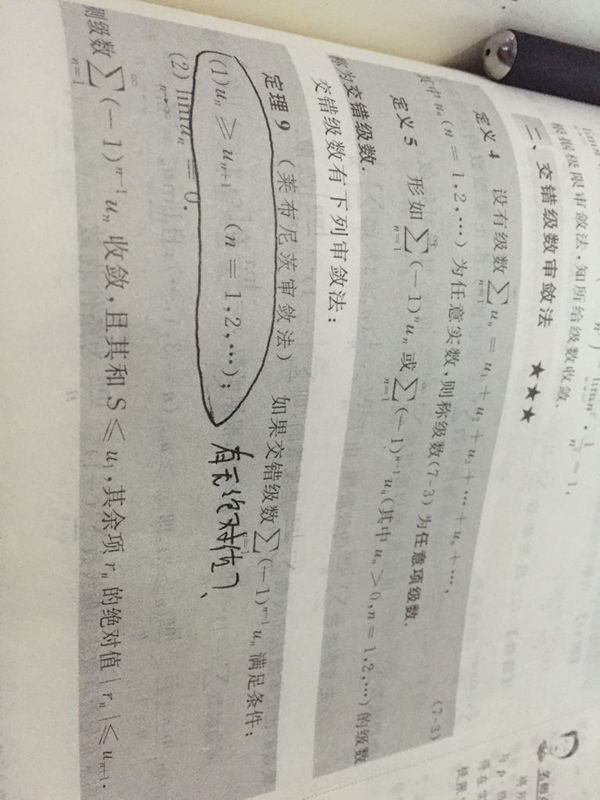 根据极限审敛法,知所给级数收敛.
二、交错级数审敛法 ★★★
定义 4 设有级数 \sum_{n=1}^{\infty} u_n = u_1 + u_2 + u_3 + … + u_n + …, (7-3)
其中 u_n (n = 1,2,…) 为任意实数,则称级数(7-3)为任意项级数.
定义 5 形如 \sum_{n=1}^{\infty} (-1)^n u_n 或 \sum_{n=1}^{\infty} (-1)^{n-1} u_n (其中 u_n > 0,n = 1,2,…) 的级数
称为交错级数.
交错级数有下列审敛法:
定理 9 (莱布尼茨审敛法) 如果交错级数 \sum_{n=1}^{\infty} (-1)^{n-1} u_n 满足条件:
(1) u_n ≥ u_{n+1} (n = 1,2,…);
有无绝对值?
(2) \lim_{n→∞} u_n = 0.
则级数 \sum_{n=1}^{\infty} (-1)^{n-1} u_n 收敛,且其和 S ≤ u_1,其余项 r_n 的绝对值 | r_n | ≤ u_{n+1}.